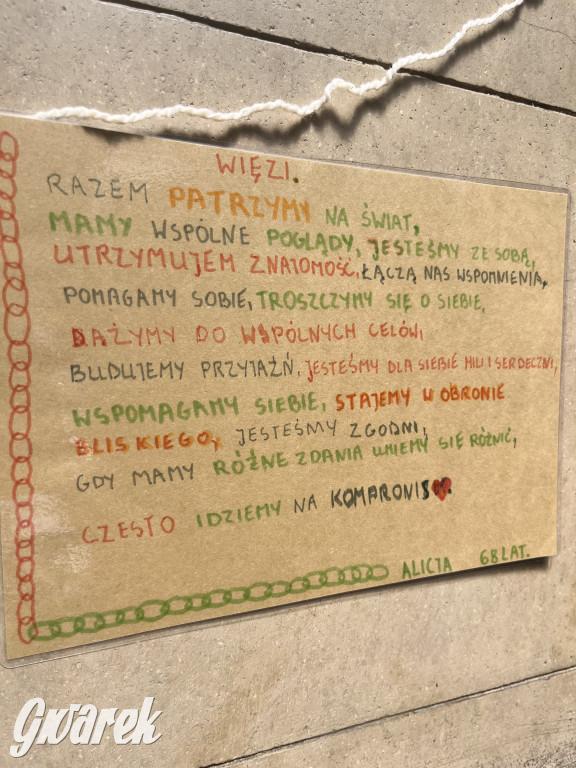 WIĘZI.
RAZEM PATRZYMY NA ŚWIAT,
MAMY WSPÓLNE POGLĄDY, JESTEŚMY ZE SOBĄ,
UTRZYMUJEM ZNAJOMOŚĆ, ŁĄCZĄ NAS WSPOMNIENIA,
POMAGAMY SOBIE, TROSZCZYMY SIĘ O SIEBIE,
DĄŻYMY DO WSPÓLNYCH CELÓW,
BUDUJEMY PRZYJAŹŃ, JESTEŚMY DLA SIEBIE MILI I SERDECZNI,
WSPOMAGAMY SIEBIE, STAJEMY W OBRONIE
BLISKIEGO, JESTEŚMY ZGODNI,
GDY MAMY RÓŻNE ZDANIA UMIEMY SIĘ RÓŻNIĆ,
CZESTO IDZIEMY NA KOMPROMIS.
ALICJA 68 LAT.
Gwarek